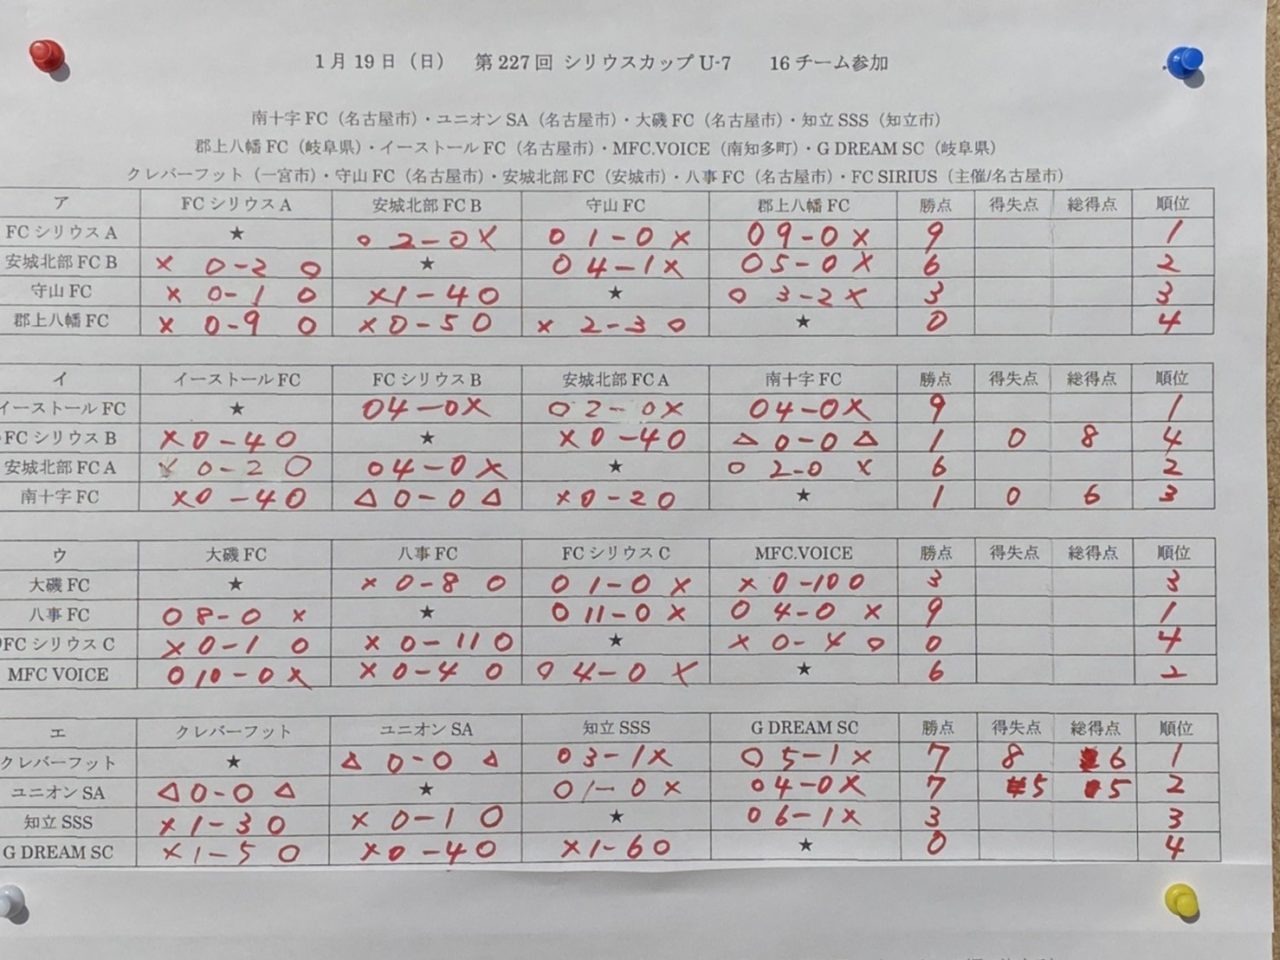 1月19日（日） 第227回 シリウスカップU-7 16チーム参加
南十字FC（名古屋市）・ユニオンSA（名古屋市）・大磯FC（名古屋市）・知立SSS（知立市）
郡上八幡FC（岐阜県）・イーストールFC（名古屋市）・MFC.VOICE（南知多町）・G DREAM SC（岐阜県）
クレバーフット（一宮市）・守山FC（名古屋市）・安城北部FC（安城市）・八事FC（名古屋市）・FC SIRIUS（主催/名古屋市）
ア FCシリウスA 安城北部FC B 守山FC 郡上八幡FC 勝点 得失点 総得点 順位
FCシリウスA ★ ○ 2-0 × ○ 1-0 × ○ 9-0 × 9 1
安城北部FC B × 0-2 ○ ★ ○ 4-1 × ○ 5-0 × 6 2
守山FC × 0-1 ○ × 1-4 ○ ★ ○ 3-2 × 3 3
郡上八幡FC × 0-9 ○ × 0-5 ○ × 2-3 ○ ★ 0 4
イ イーストールFC FCシリウスB 安城北部FC A 南十字FC 勝点 得失点 総得点 順位
イーストールFC ★ ○ 4-0 × ○ 2-0 × ○ 4-0 × 9 1
FCシリウスB × 0-4 ○ ★ × 0-4 ○ △ 0-0 △ 1 0 8 4
安城北部FC A × 0-2 ○ ○ 4-0 × ★ ○ 2-0 × 6 2
南十字FC × 0-4 ○ △ 0-0 △ × 0-2 ○ ★ 1 0 6 3
ウ 大磯FC 八事FC FCシリウスC MFC.VOICE 勝点 得失点 総得点 順位
大磯FC ★ × 0-8 ○ ○ 1-0 × × 0-10 ○ 3 3
八事FC ○ 8-0 × ★ ○ 11-0 × ○ 4-0 × 9 1
FCシリウスC × 0-1 ○ × 0-11 ○ ★ × 0-4 ○ 0 4
MFC VOICE ○ 10-0 × × 0-4 ○ ○ 4-0 × ★ 6 2
エ クレバーフット ユニオンSA 知立SSS G DREAM SC 勝点 得失点 総得点 順位
クレバーフット ★ △ 0-0 △ ○ 3-1 × ○ 5-1 × 7 8 6 1
ユニオンSA △ 0-0 △ ★ ○ 1-0 × ○ 4-0 × 7 5 5 2
知立SSS × 1-3 ○ × 0-1 ○ ★ ○ 6-1 × 3 3
G DREAM SC × 1-5 ○ × 0-4 ○ × 1-6 ○ ★ 0 4